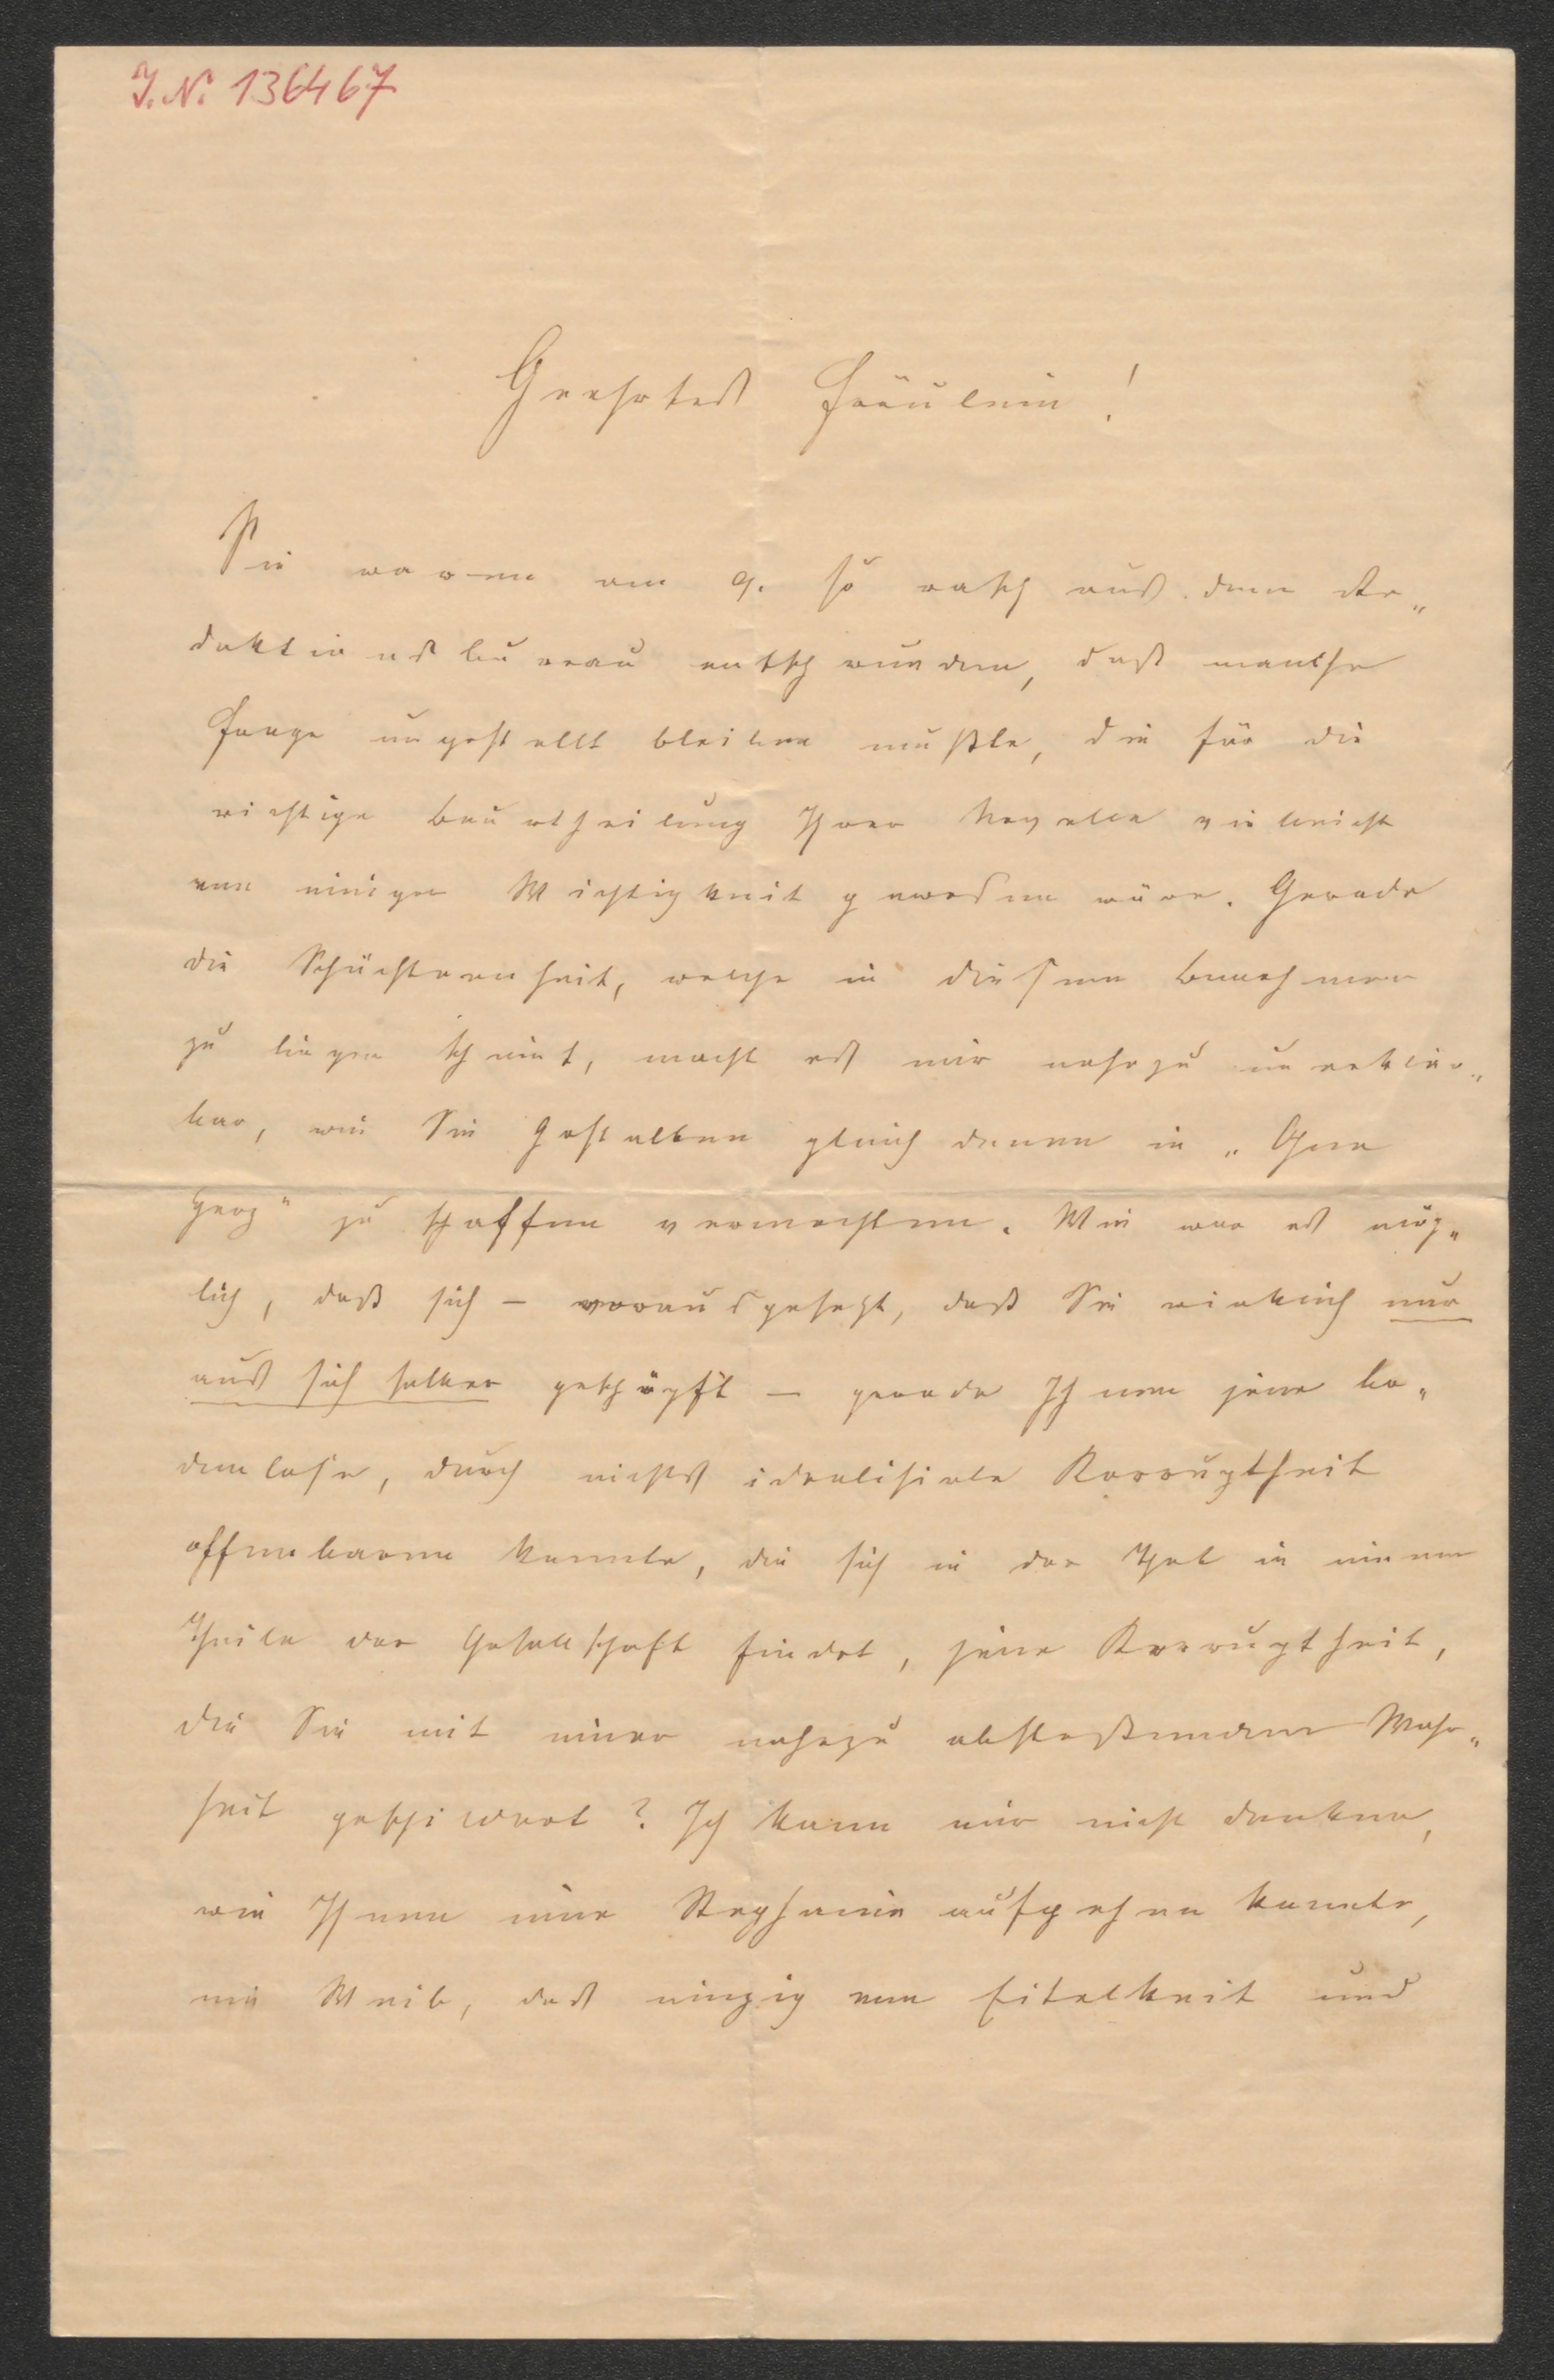 J. N. 136467
Geehrtes Fräulein!
Sie waren am 9. so rasch aus dem Re„
daktionsbureau entschwunden, daß manche
Frage ungestellt bleiben mußte, die für die
richtige Beurtheilung Ihrer Novelle vielleicht
von einiger Wichtigkeit gewesen wäre. Gerade
die Schüchternheit, welche in diesem Benehmen
zu liegen scheint, macht es mir nahezu unerklär„
bar, wie Sie Gestalten gleich denen in „Ohne
Herz“ zu schaffen vermochten. Wie war es mög„
lich, daß sich – vorausgesetzt, daß Sie wirklich nur
aus sich selber geschöpft – gerade Ihnen jene bo„
denlose, durch nichts idealisirte Korruptheit
offenbaren konnte, die sich in der That in einem
Theile der Gesellschaft findet, jene Korruptheit,
die Sie mit einer nahezu abstoßenden Wahr„
heit geschildert? Ich kann mir nicht denken,
wie Ihnen eine Stephanie aufgehen konnte,
ein Weib, das einzig von Eitelkeit und